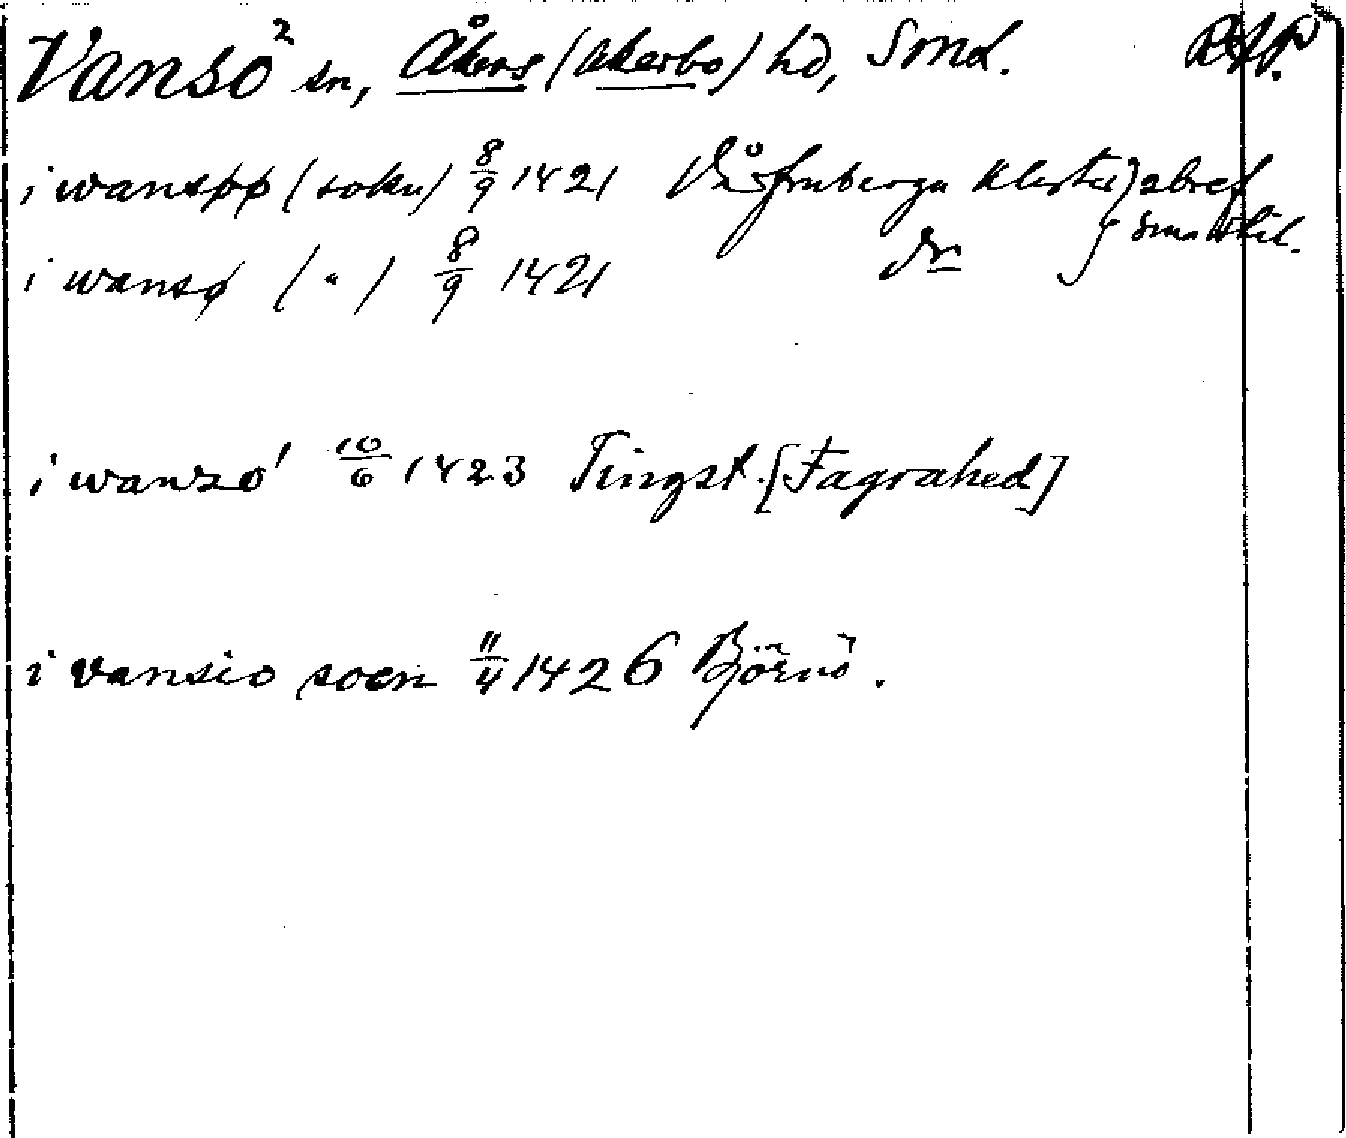 Vansö² sn, Åkers (Akerbo) hd, Smd. RAP.
i wanspø (sokn) 8/9 1421 Vårfruberga Kloster } 2 bref
i wansø ( " ) 8/9 1421 Dr } sma stil.
i wanzo' 10/6 1423 Tingst. [Fagrahed]
i vansio socn 11/4 1426 Björnö.